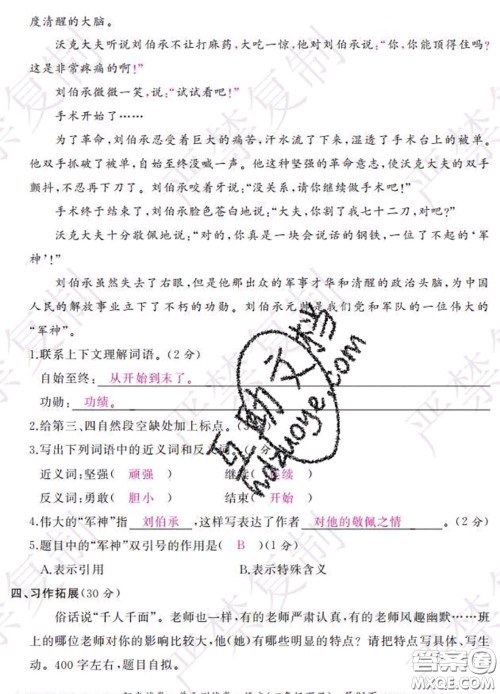 度清醒的大脑。
沃克大夫听说刘伯承不让打麻药,大吃一惊,他对刘伯承说:“你,你能顶得住吗?
这是非常疼痛的啊!”
刘伯承微微一笑,说:“试试看吧!”
手术开始了……
为了革命,刘伯承忍受着巨大的痛苦,汗水流了下来,湿透了手术台上的被单。
他双手抓破了被单,自始至终没喊一声。他这种坚强的革命意志,使沃克大夫的双手
颤抖,不忍再下刀了。刘伯承咬着牙说:“没关系,请你继续做手术吧!”
手术终于结束了,刘伯承脸色苍白地说:“大夫,你割了我七十二刀,对吧?”
沃克大夫十分敬佩地说:“对的,你真是一块会说话的钢铁,一位了不起的‘军
神’!”
刘伯承虽然失去了右眼,但是他那出众的军事才华和清醒的政治头脑,为中国
人民的解放事业立下了不朽的功勋。刘伯承元帅是我们党和军队的一位伟大的
“军神”。
1.联系上下文理解词语。(2分)
自始至终: 从开始到末了。
功勋: 功绩。
2.给第三、四自然段空缺处加上标点。
3.写出下列词语中的近义词和反义词。
近义词:坚强( 顽强 ) 继续( 连续 )
反义词:勇敢( 胆小 ) 结束( 开始 )
4.伟大的“军神”指 刘伯承 ,这样写表达了作者 对他的敬佩之情 。(2分)
5.题目中的“军神”双引号的作用是( B )(1分)
A.表示引用 B.表示特殊含义
四、习作拓展(30分)
俗话说“千人千面”。老师也一样,有的老师严肃认真,有的老师风趣幽默……班
上的哪位老师对你的影响比较大,他(她)有哪些明显的特点?请把特点写具体、写生
动。400字左右,题目自拟。
严禁复制
严禁复制
互助文档
hdzuoye.com
答案圈